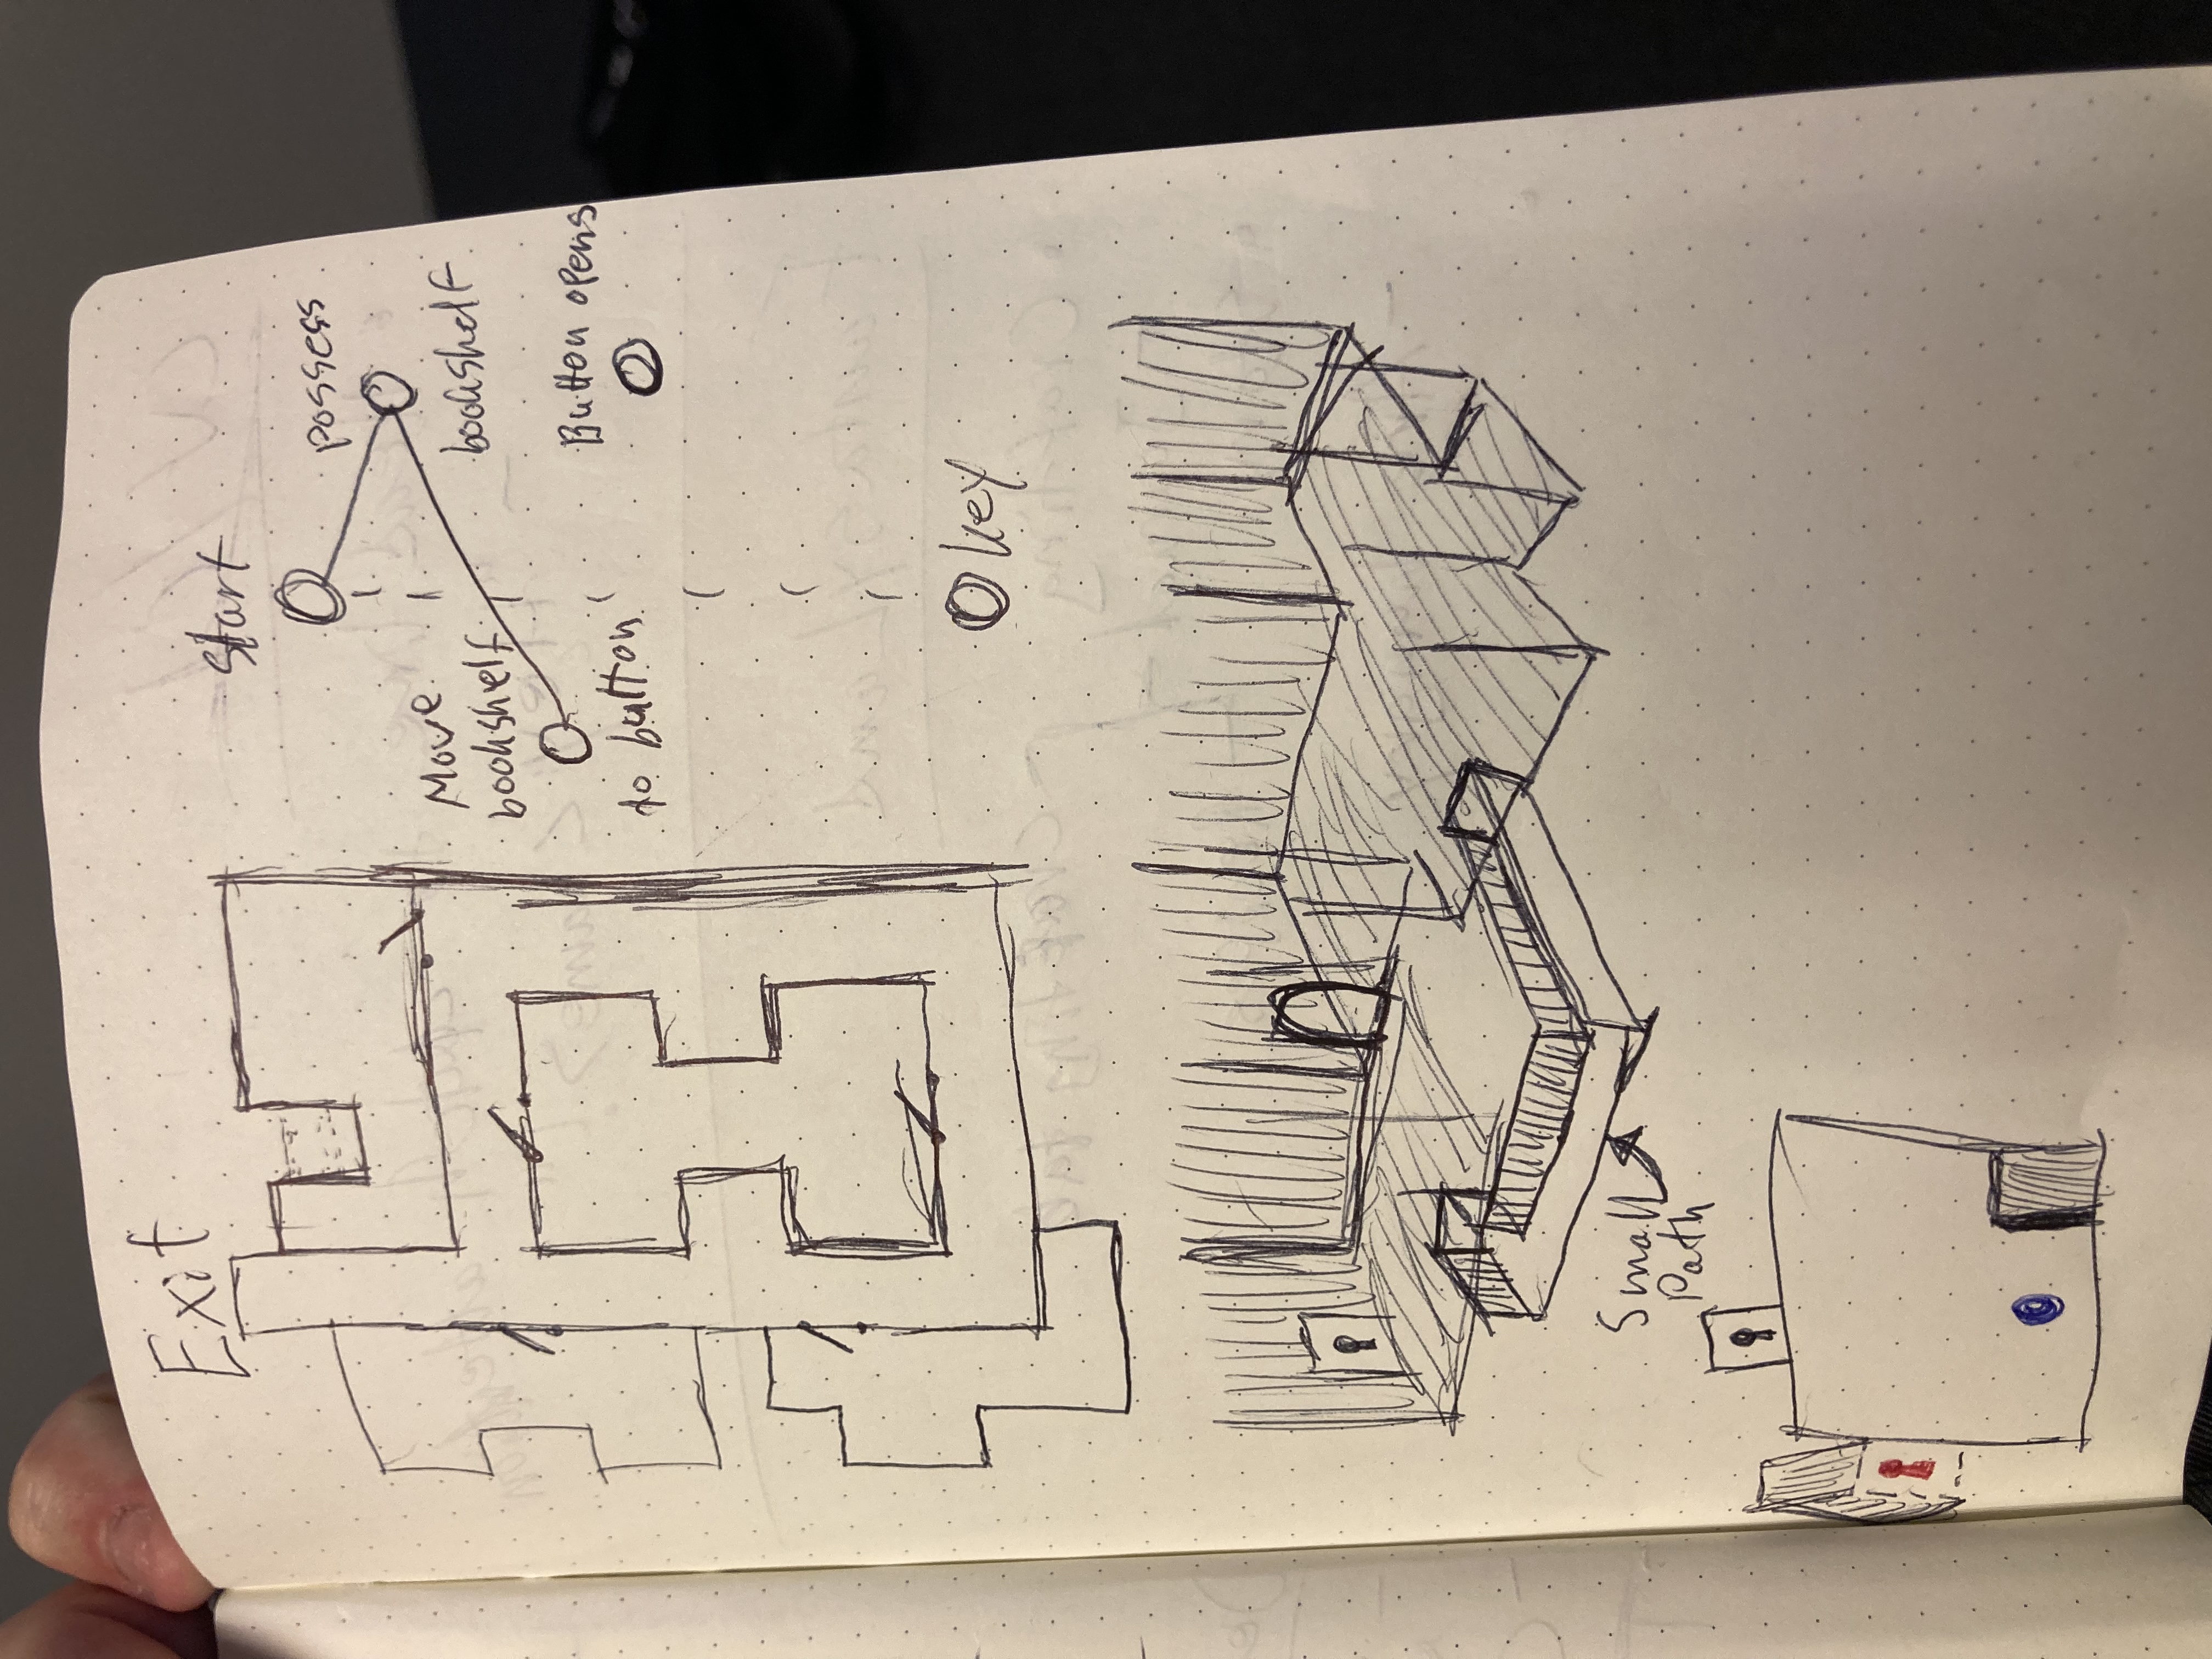 Exit
Start
possess
bookshelf
Move
bookshelf
to button
Button opens
key
Small
Path